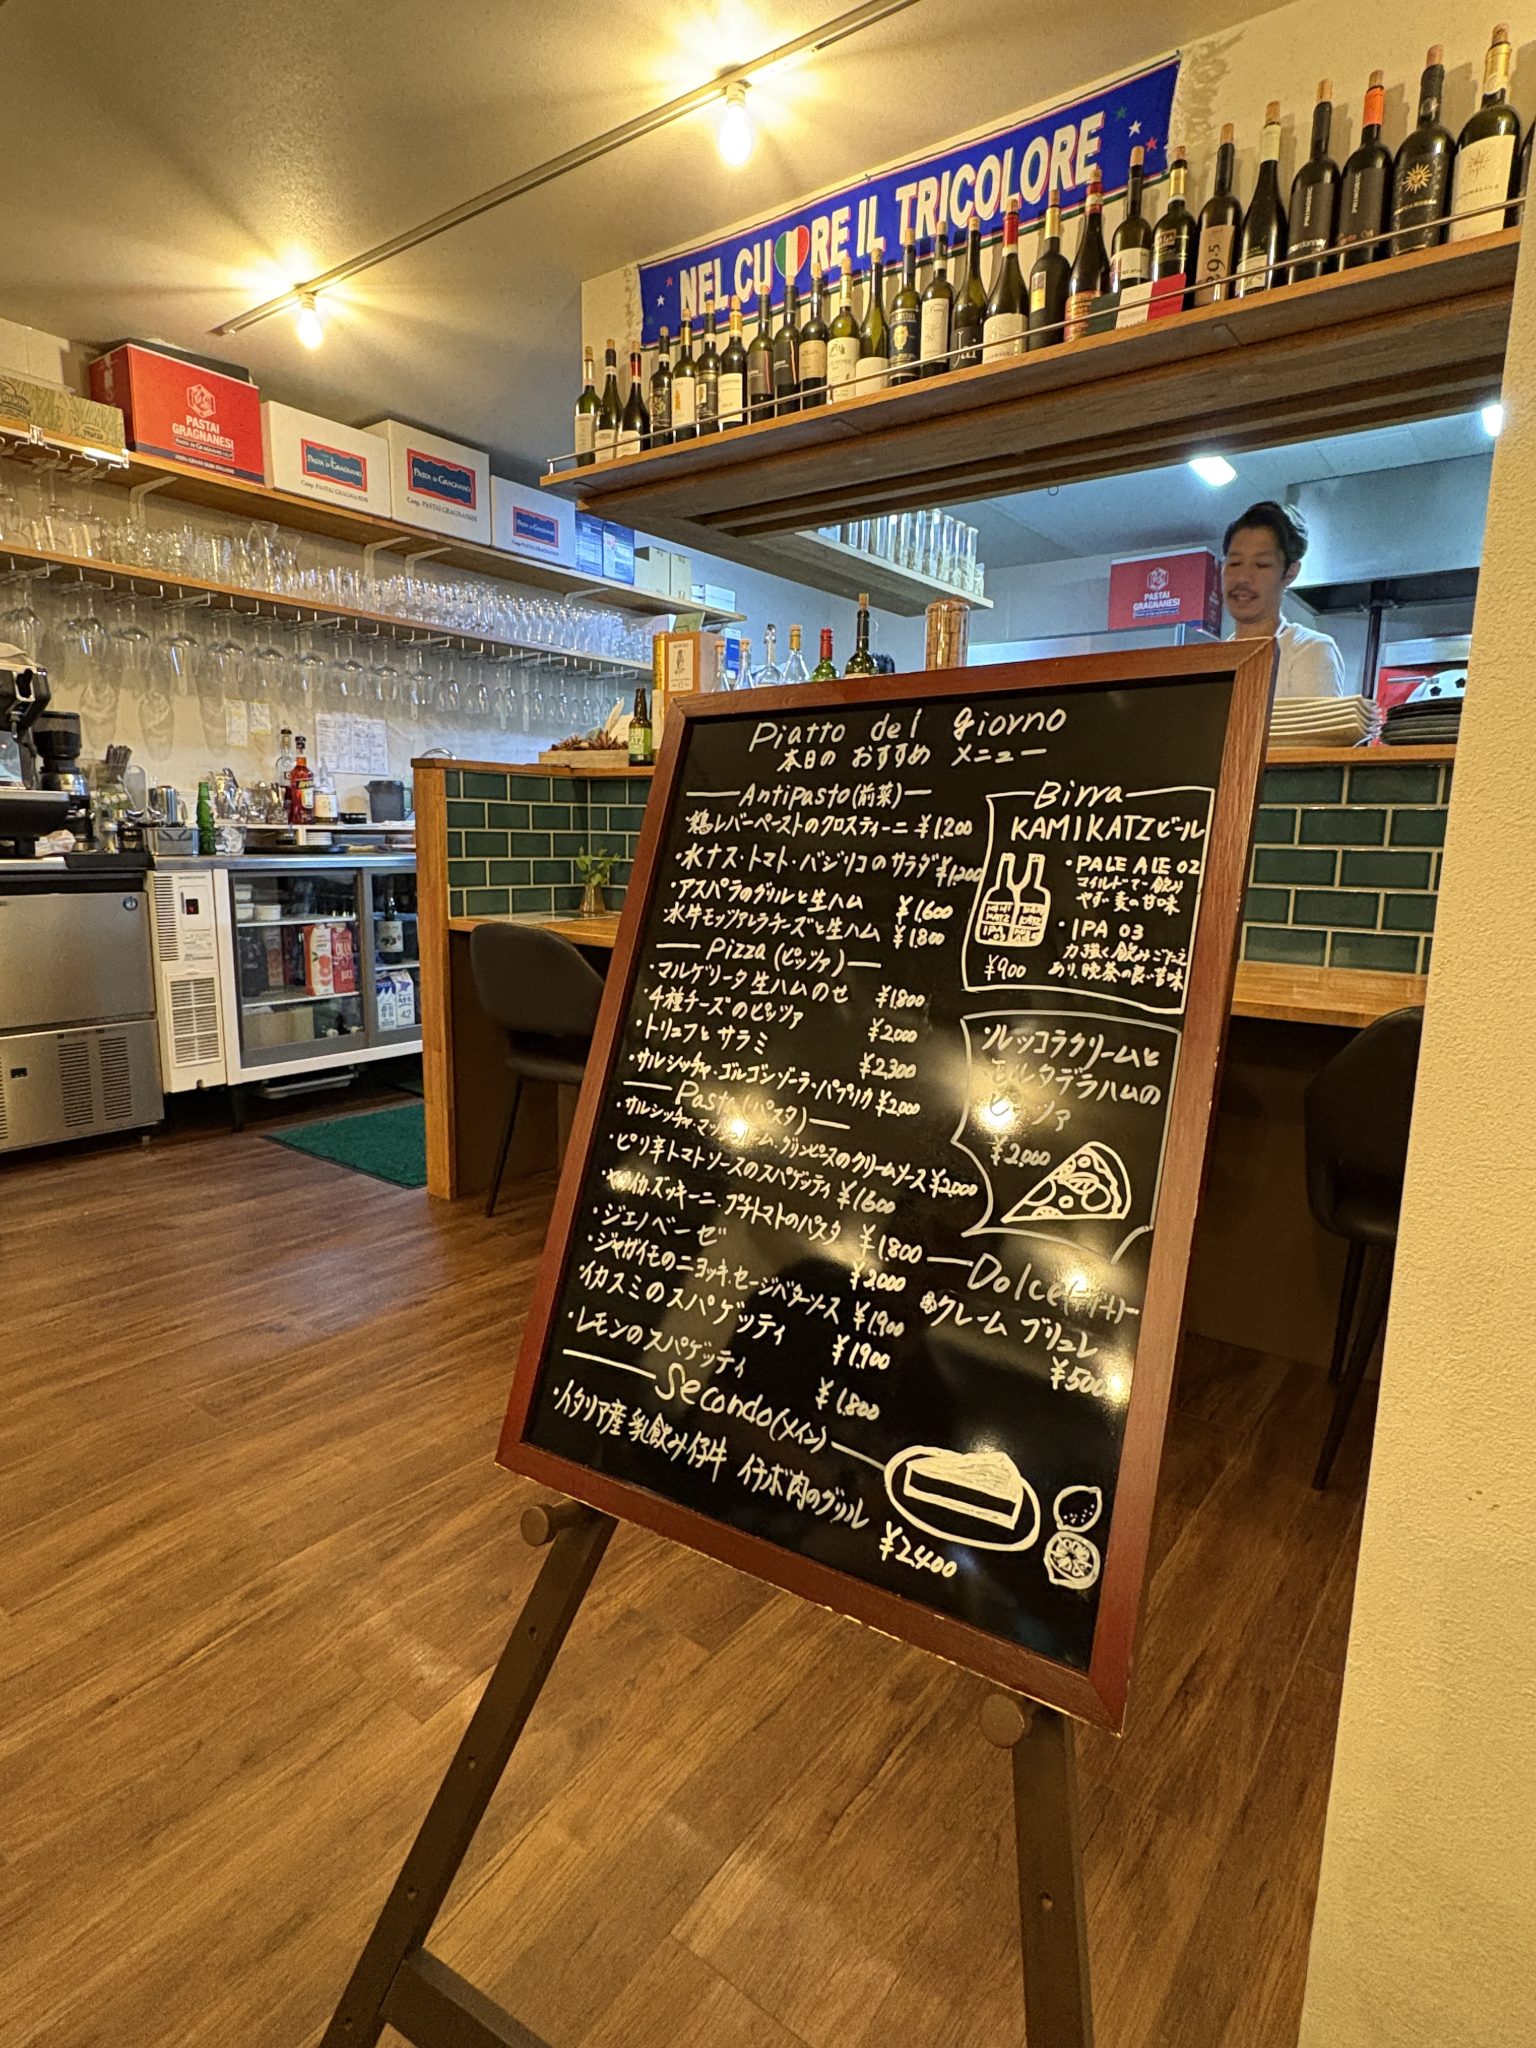 NEL CUORE IL TRICOLORE
PASTAI
GRAGNANESI
PASTA DI GRAGNANO
Coop. PASTAI GRAGNANESI
PASTA DI GRAGNANO
Coop. PASTAI GRAGNANESI
PASTAI
GRAGNANESI
Piatto del giorno
本日の おすすめ メニュー
Antipasto(前菜)
・鶏レバーペーストのクロスティーニ ¥1,200
・水ナス・トマト・バジリコのサラダ ¥1,200
・アスパラのグリルと生ハム ¥1,600
・水牛モッツァレラチーズと生ハム ¥1,800
Pizza(ピッツァ)
・マルゲリータ 生ハムのせ ¥1,800
・4種チーズのピッツァ ¥2,000
・トリュフとサラミ ¥2,300
・サルシッチャ・ゴルゴンゾーラ・パプリカ ¥2,000
Pasta(パスタ)
・サルシッチャ・マッシュルーム・グリンピースのクリームソース ¥2,000
・ピリ辛トマトソースのスパゲッティ ¥1,600
・ヤリイカ・ズッキーニ・プチトマトのパスタ ¥1,800
・ジェノベーゼ ¥2,000
・ジャガイモのニョッキ・セージバターソース ¥1,900
・イカスミのスパゲッティ ¥1,900
・レモンのスパゲッティ ¥1,800
Secondo(メイン)
・イタリア産 乳飲み仔牛 イチボ肉のグリル ¥2,400
Birra
KAMIKATZビール
・PALE ALE 02
マイルドで飲み
やすい麦の甘味
・IPA 03
力強く飲みごたえ
あり、晩茶の良い苦味
¥900
・ルッコラクリームと
モルタデラハムの
ピッツァ
¥2,000
Dolce(デザート)
クレーム ブリュレ
¥500